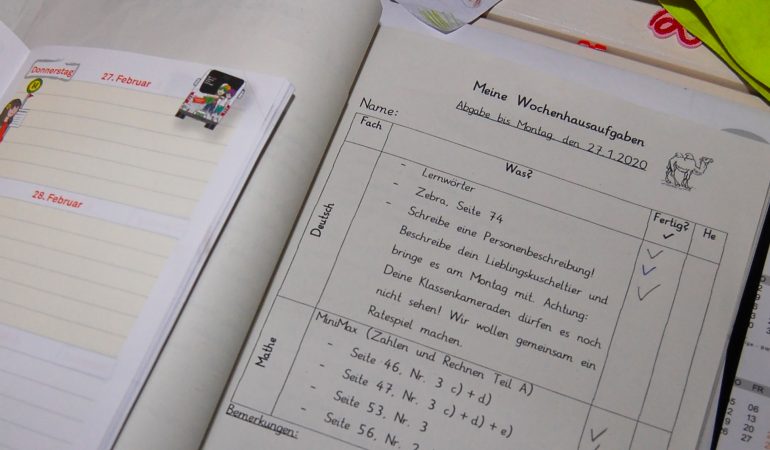 Donnerstag
27. Februar
28. Februar
Meine Wochenhausaufgaben
Abgabe bis Montag, den 27.1.2020
Name:
Fach
Was?
Fertig?
He
Deutsch
- Lernwörter
- Zebra, Seite 74
- Schreibe eine Personenbeschreibung!
Beschreibe dein Lieblingskuscheltier und
bringe es am Montag mit. Achtung:
Deine Klassenkameraden dürfen es noch
nicht sehen! Wir wollen gemeinsam ein
Ratespiel machen.
Mathe
MiniMax (Zahlen und Rechnen Teil A)
- Seite 46, Nr. 3 c) + d)
- Seite 47, Nr. 3 c) + d) + e)
- Seite 53, Nr. 3
- Seite 56, Nr. 2
Bemerkungen:
FR